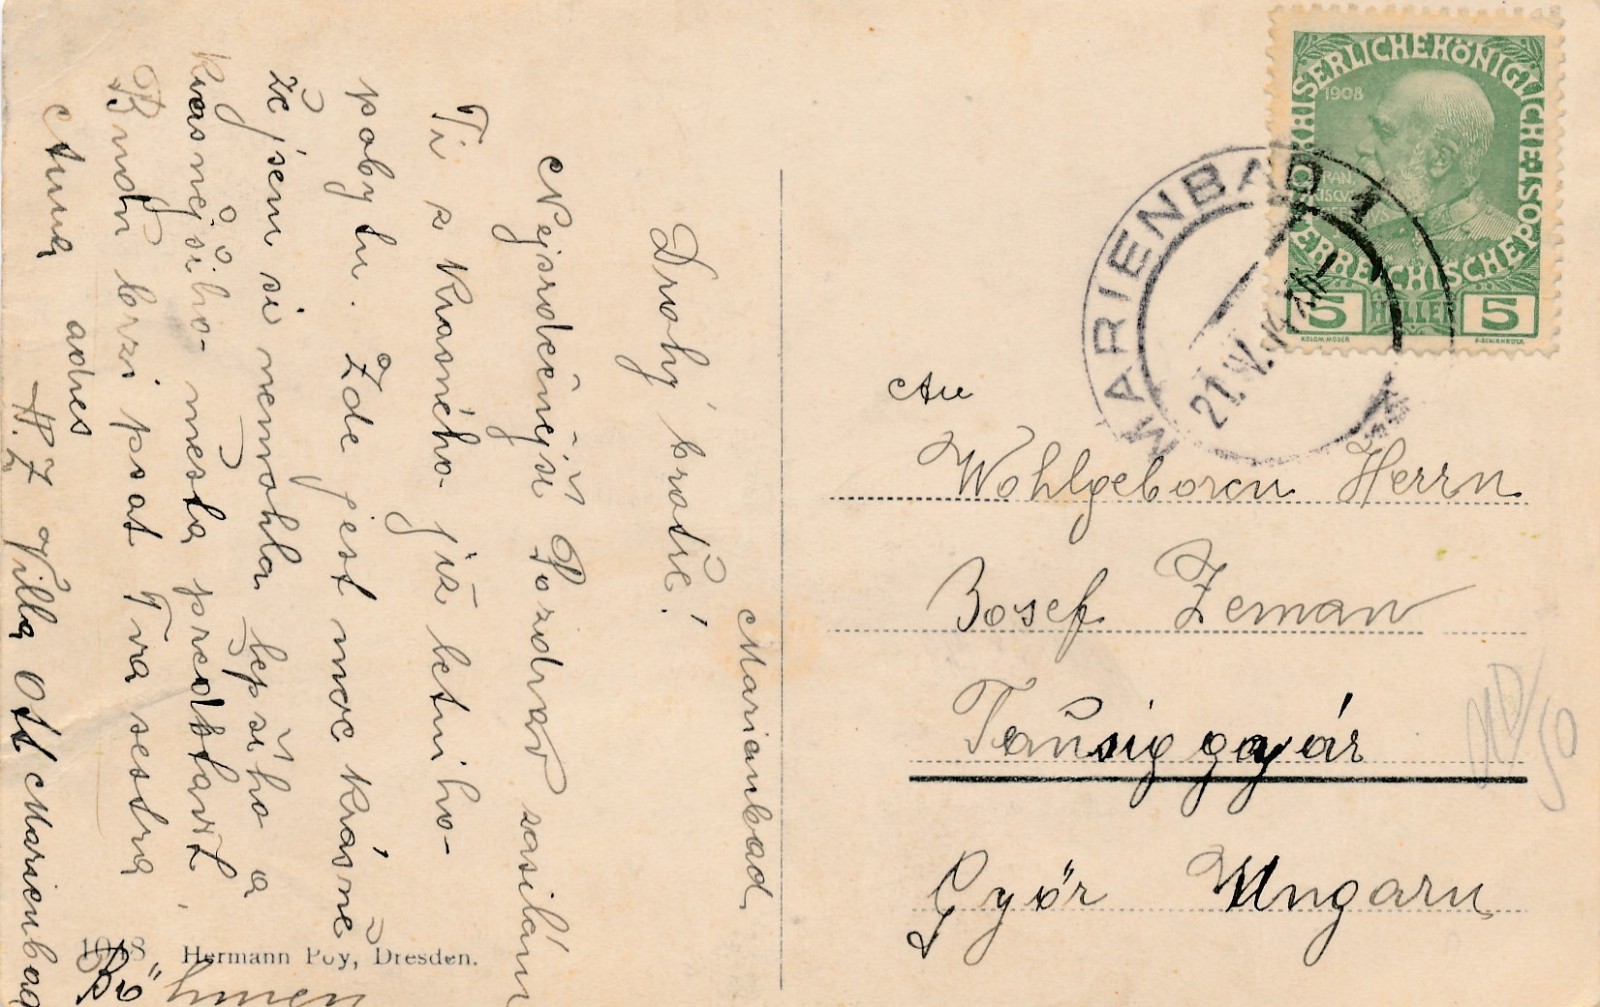 Marienbad,
Drahý bratře!
Nejsrdečnější Pozdrav zasílám
Ti z Krasného již letního
pobytu. Zde jest moc krásně
že jsem si nemohla lepšího a
krasnějšího města představit,
Budu brzi psat Tva sestra
Anna adres
A. Z Villa Ott Marienbad
Böhmen
Hermann Poy, Dresden.
KAISERLICHEKÖNIGLICHE ÖSTERREICHISCHEPOST
1908
5 HELLER 5
MARIENBAD 1
An
Wohlgeboren Herrn
Josef Zeman
Tausiggyár
Győr Ungarn